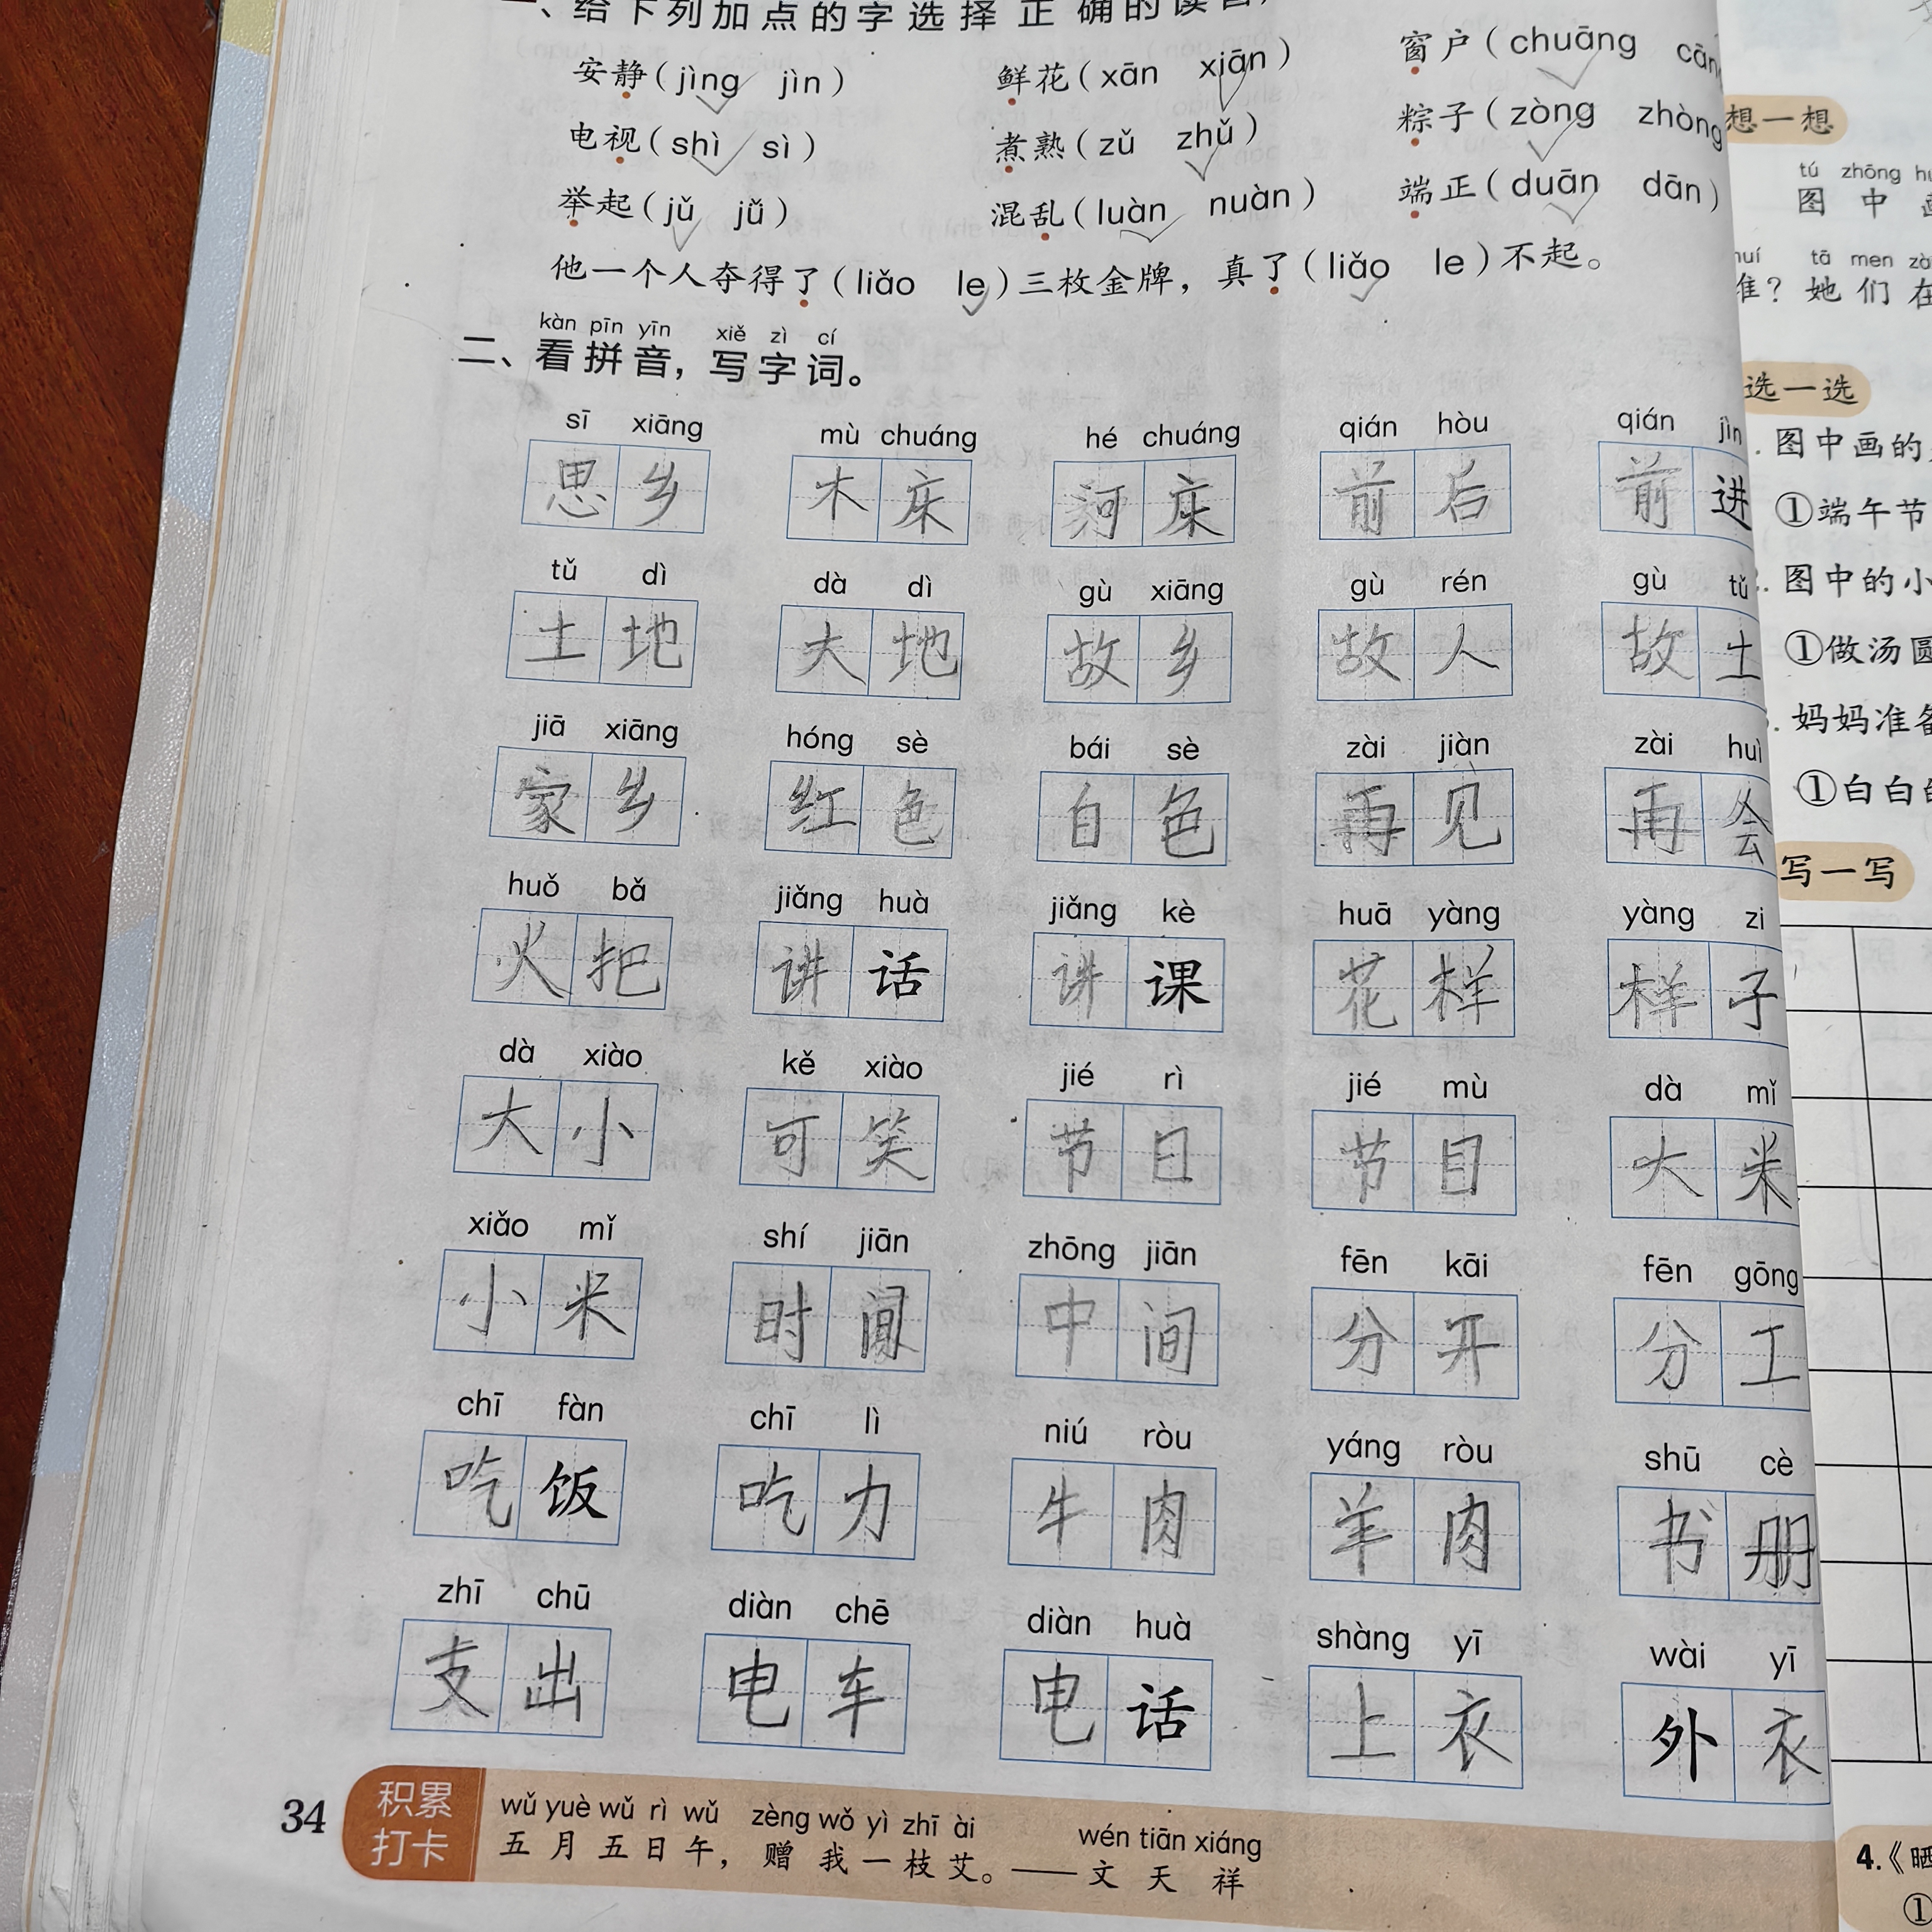 一、给下列加点的字选择正确的读音，
安静（jìng jìn） 鲜花（xān xiān） 窗户（chuāng
电视（shì sì） 煮熟（zǔ zhǔ） 粽子（zòng zhòng
举起（jǔ jǚ） 混乱（luàn nuàn） 端正（duān dān）
他一个人夺得了（liǎo le）三枚金牌，真了（liǎo le）不起。
kàn pīn yīn xiě zì cí
二、看拼音，写字词。
sī xiāng mù chuáng hé chuáng qián hòu qián jìn
思乡 木床 河床 前后 前进
tǔ dì dà dì gù xiāng gù rén gù tǔ
土地 大地 故乡 故人 故土
jiā xiāng hóng sè bái sè zài jiàn zài huì
家乡 红色 白色 再见 再会
huǒ bǎ jiǎng huà jiǎng kè huā yàng yàng zi
火把 讲话 讲课 花样 样子
dà xiào kě xiào jié rì jié mù dà mǐ
大小 可笑 节日 节目 大米
xiǎo mǐ shí jiān zhōng jiān fēn kāi fēn gōng
小米 时间 中间 分开 分工
chī fàn chī lì niú ròu yáng ròu shū cè
吃饭 吃力 牛肉 羊肉 书册
zhī chū diàn chē diàn huà shàng yī wài yī
支出 电车 电话 上衣 外衣
34
积累
打卡
wǔ yuè wǔ rì wǔ zèng wǒ yì zhī ài wén tiān xiáng
五月五日午，赠我一枝艾。——文天祥
想一想
tú zhōng
图中
tā men
她们在
选一选
图中画的
①端午节
图中的小
①做汤圆
妈妈准备
①白白的
写一写
4.《晒
①